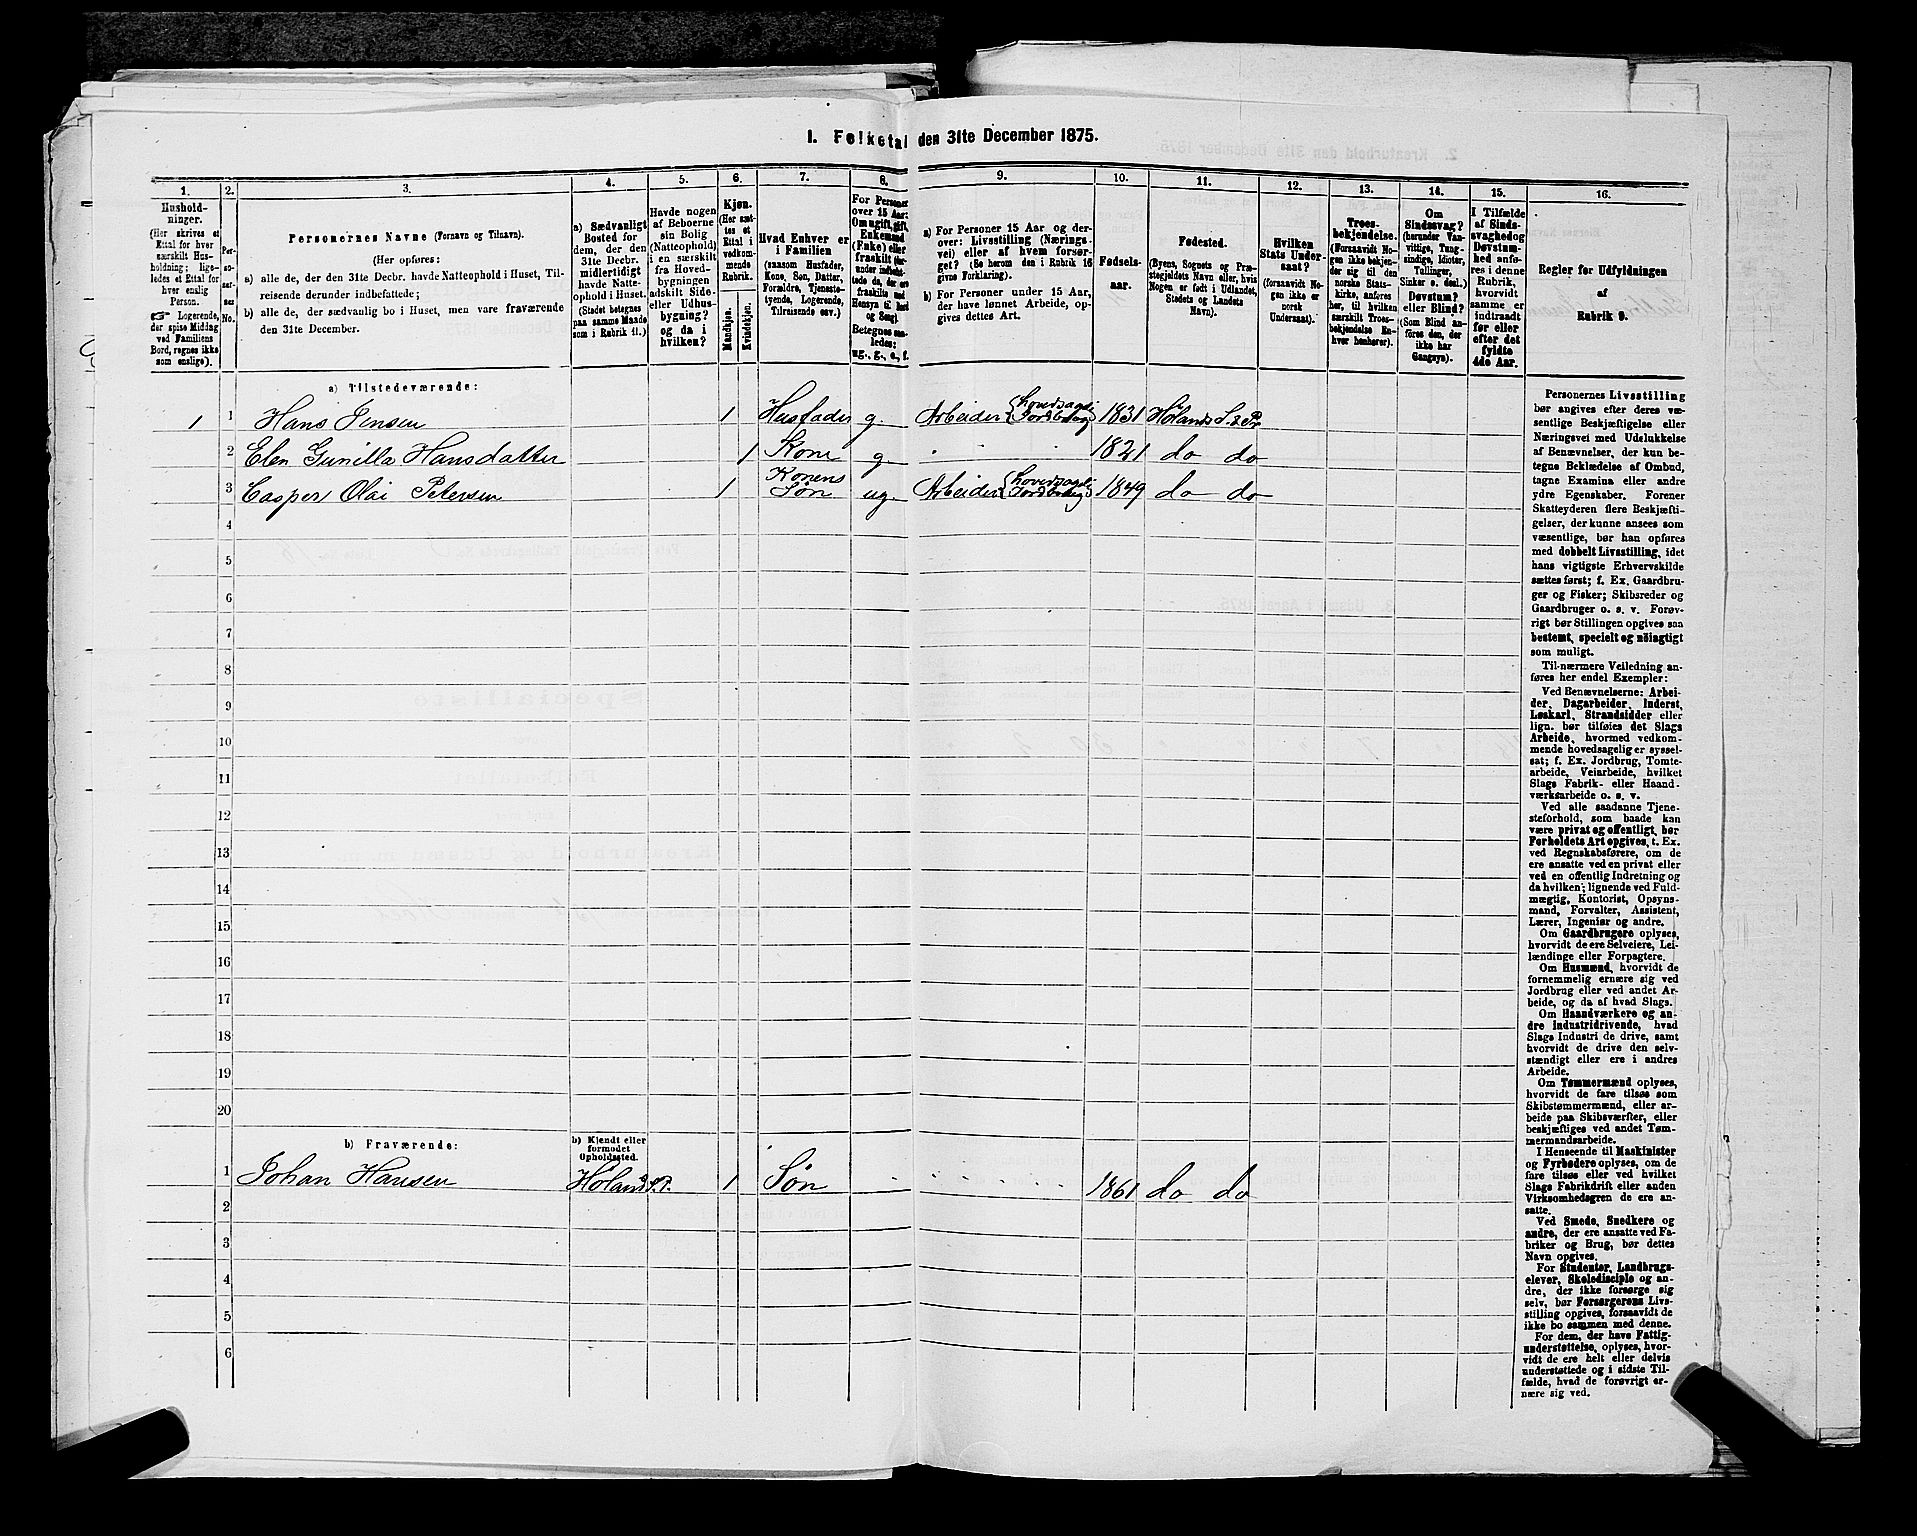 1. Folketal den 31te December 1875.
1. 2. 3. 4. 5. 6. 7. 8. 9. 10. 11. 12. 13. 14. 15. 16.
Hushold-
ninger.
(Her skrives et
Ettal for hver
særskilt Hus-
holdning; lige-
ledes et Ettal for
hver enslig
Person.
☞ Logerende,
der spise Middag
ved Familiens
Bord, regnes ikke
som enslige).
Per-
so-
ner-
nes
No.
Personernes Navne (Fornavn og Tilnavn).
(Her opføres:
a) alle de, der den 31te Decbr. havde Natteophold i Huset, Til-
reisende derunder indbefattede;
b) alle de, der sædvanlig bo i Huset, men vare fraværende
den 31te December.
a) Sædvanligt
Bosted for
dem, der den
31te Decbr.
midlertidigt
havde Natte-
ophold i Huset.
(Stedet betegnes
paa samme Maade
som i Rubrik 11.)
Havde nogen
af Beboerne
sin Bolig
(Natteophold)
i en særskilt
fra Hoved-
bygningen
adskilt Side-
eller Udhus-
bygning?
og da i
hvilken?
Kjøn.
(Her sæt-
tes et
Ettal i
vedkom-
mende
Rubrik.
Mandkjøn.
Kvindekjøn.
Hvad Enhver er
i Familien
(saasom Husfader,
Kone, Søn, Datter,
Forældre, Tjeneste-
tyende, Logerende,
Tilreisende osv.)
For Personer
over 15 Aar:
Om ugift, gift,
Enkemand
(Enke) eller
fraskilt
Betegnes saa-
ledes:
ug., g., e., f.
a) For Personer 15 Aar og der-
over: Livsstilling (Nærings-
vei) eller af hvem forsør-
get? (Se herom den i Rubrik 16
givne Forklaring).
b) For Personer under 15 Aar,
der have lønnet Arbeide, op-
gives dettes Art.
Fødsels-
aar.
Fødested.
(Byens, Sognets og Præ-
stegjeldets Navn eller, hvis
Nogen er født i Udlandet,
Stedets og Landets
Navn).
Hvilken
Stats Under-
saat?
(forsaavidt No-
gen ikke er
norsk
Undersaat).
Troes-
bekjendelse.
(Forsaavidt No-
gen ikke bekjen-
der sig til den
norske Stats-
kirke, anføres
her, til hvilken
særskilt Troes-
bekjendelse En-
hver henhører).
Om
Sindssvag?
(herunder Van-
vittige, Tung-
sindige, Idioter,
Tullinger,
Sinker o. desl.)
Døvstum?
eller Blind?
(Som Blind an-
føres den, der
ikke har
Gangsyn).
I Tilfælde
af Sinds-
svaghed og
Døvstum-
hed anfø-
res i denne
Rubrik,
hvorvidt
samme er
indtraadt
før eller
efter det
fyldte
4de Aar.
Regler for Udfyldningen
af
Rubrik 9.
a) Tilstedeværende:
1 1 Hans Jensen 1 Husfader g. Arbeider {hovedsagel. Jordbrug} 1831 Hølands S. & Pr.
2 Elen Gunilla Hansdatter 1 Kone g. 1821 do do
3 Casper Olai Petersen 1 Konens Søn ug. Arbeider {hovedsagel. Jordbrug} 1849 do do
4
5
6
7
8
9
10
11
12
13
14
15
16
17
18
19
20
b) Fraværende:
b) Kjendt eller
formodet
Opholdssted.
1 Johan Hansen Høland 1 Søn 1861 do do
2
3
4
5
6
Personernes Livsstilling
bør angives efter deres væ-
sentlige Beskjæftigelse eller
Næringsvei med Udelukkelse
af Benævnelser, der kun be-
tegne Beklædelse af Ombud,
tagne Examina eller andre
ydre Egenskaber. Forener
Skatteyderen flere Beskjæfti-
gelser, der kunne ansees som
væsentlige, bør han opføres
med dobbelt Livsstilling, idet
hans vigtigste Erhvervskilde
sættes først; f. Ex. Gaardbru-
ger og Fisker; Skibsreder og
Gaardbruger o. s. v. Forøv-
rigt bør Stillingen opgives saa
bestemt, specielt og nöiagtigt
som muligt.
Til nærmere Veiledning an-
føres her endel Exempler:
Ved Benævnelserne: Arbei-
der, Dagarbeider, Inderst,
Løskarl, Strandsidder eller
lign. bør tilføies det Slags
Arbeide, hvormed vedkom-
mende hovedsagelig er syssel-
sat; f. Ex. Jordbrug, Tomte-
arbeide, Veiarbeide, hvilket
Slags Fabrik- eller Haand-
værksarbeide o. s. v.
Ved alle saadanne Tjene-
steforhold, som baade kan
være privat og offentligt, bør
Forholdets Art opgives, t. Ex.
ved Regnskabsførere, om de
ere ansatte ved en privat eller
ved en offentlig Indretning og
da hvilken; lignende ved Fuld-
mægtig, Kontorist, Opsyns-
mand, Forvalter, Assistent,
Lærer, Ingeniør og andre.
Om Gaardbrugere oplyses,
hvorvidt de ere Selveiere, Lei-
lændinge eller Forpagtere.
Om Husmænd, hvorvidt de
fornemmelig ernære sig ved
Jordbrug eller ved andet Ar-
beide, og da af hvad Slags.
Om Haandværkere og an-
dre Industridrivende, hvad
Slags Industri de drive, samt
hvorvidt de drive den selv-
stændigt eller ere i andres
Arbeide.
Om Tømmermænd oplyses,
hvorvidt de fare tilsøs som
Skibstømmermænd, eller ar-
beide paa Skibsværfter, eller
beskjæftiges ved andet Tøm-
mermandsarbeide.
I Henseende til Maskinister
og Fyrbødere oplyses, om de
fare tilsøs eller ved hvilket
Slags Fabrikdrift eller anden
Virksomhedsgren de ere an-
satte.
Ved Smede, Snedkere og
andre, der ere ansatte ved Fa-
briker og Brug, bør dettes
Navn opgives.
For Studenter, Landbrugs-
elever, Skoledisciple og an-
dre, der ikke forsørge sig
selv, bør Forsørgerens Livs-
stilling opgives, forsaavidt de
ikke bo sammen med denne.
For dem, der have Fattig-
understøttelse, oplyses, hvor-
vidt de ere helt eller delvis
understøttede og i sidste Til-
fælde, hvad de forøvrigt er-
nære sig ved.